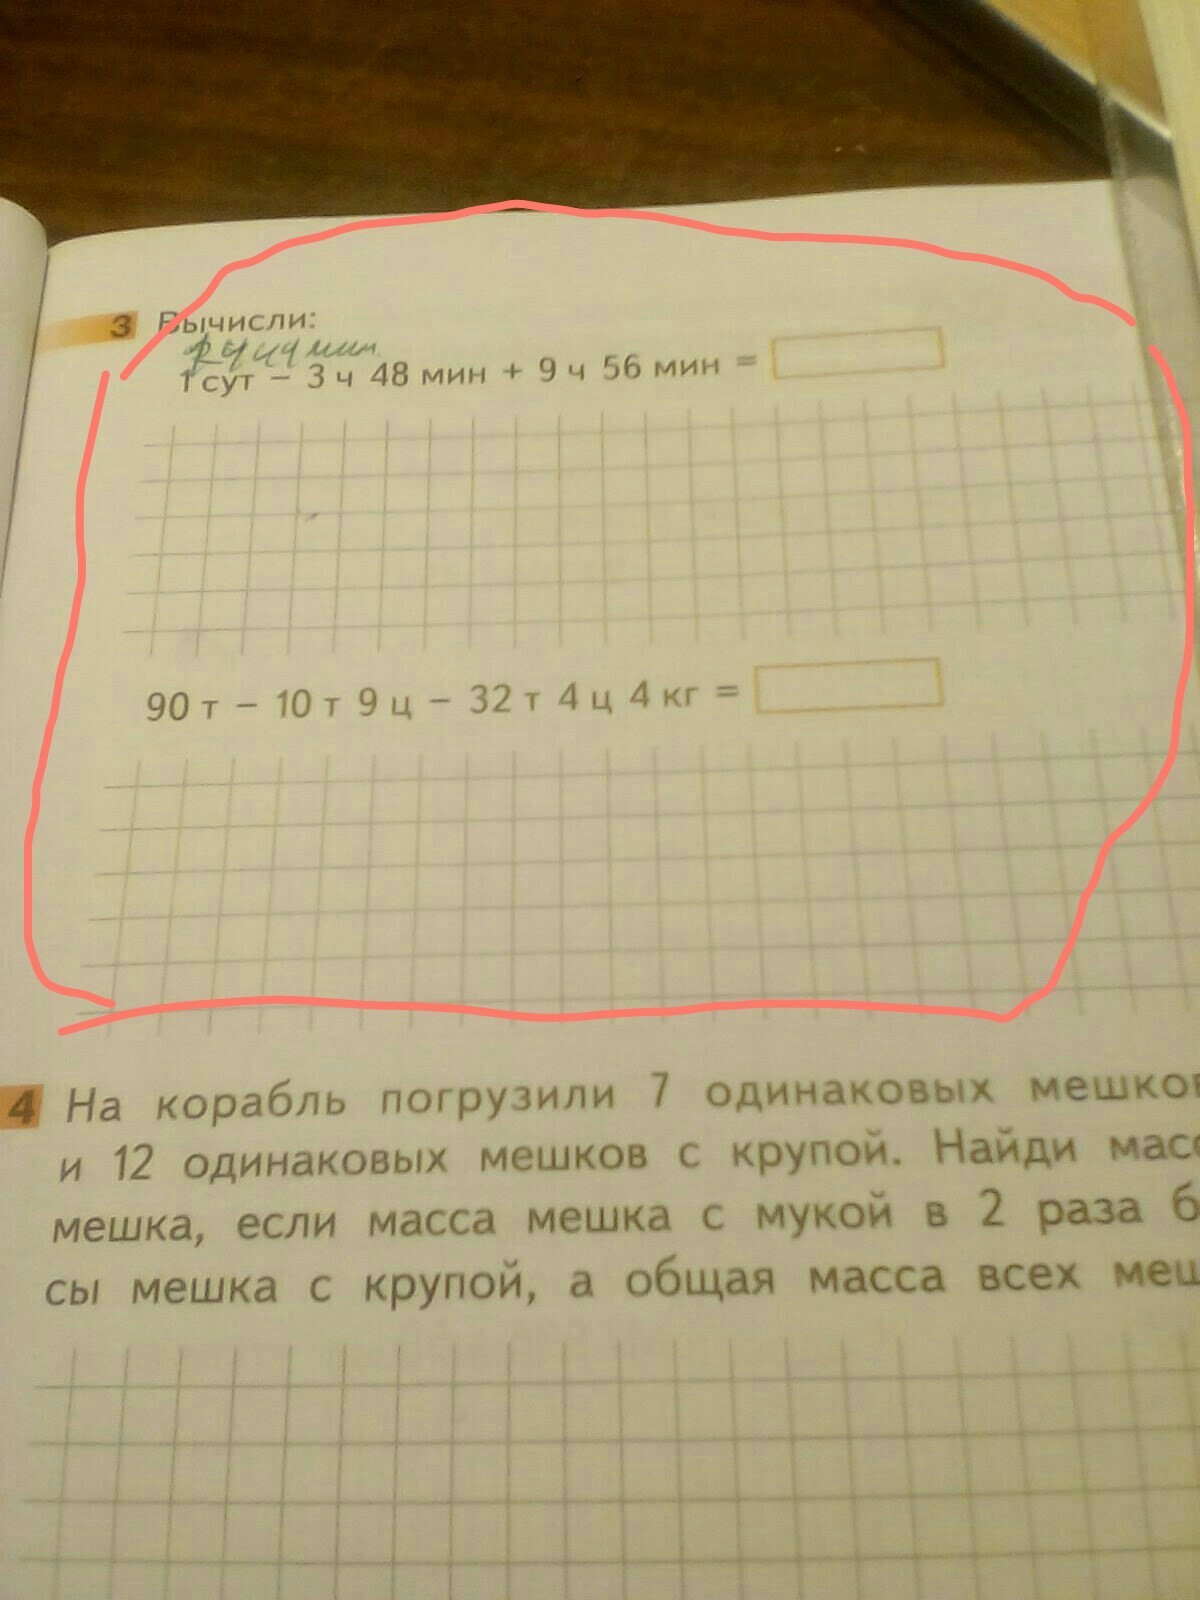 3 Вычисли:
1 сут – 3 ч 48 мин + 9 ч 56 мин =
90 т – 10 т 9 ц – 32 т 4 ц 4 кг =
4 На корабль погрузили 7 одинаковых мешков
и 12 одинаковых мешков с крупой. Найди
мешка, если масса мешка с мукой в 2 раза
сы мешка с крупой, а общая масса всех